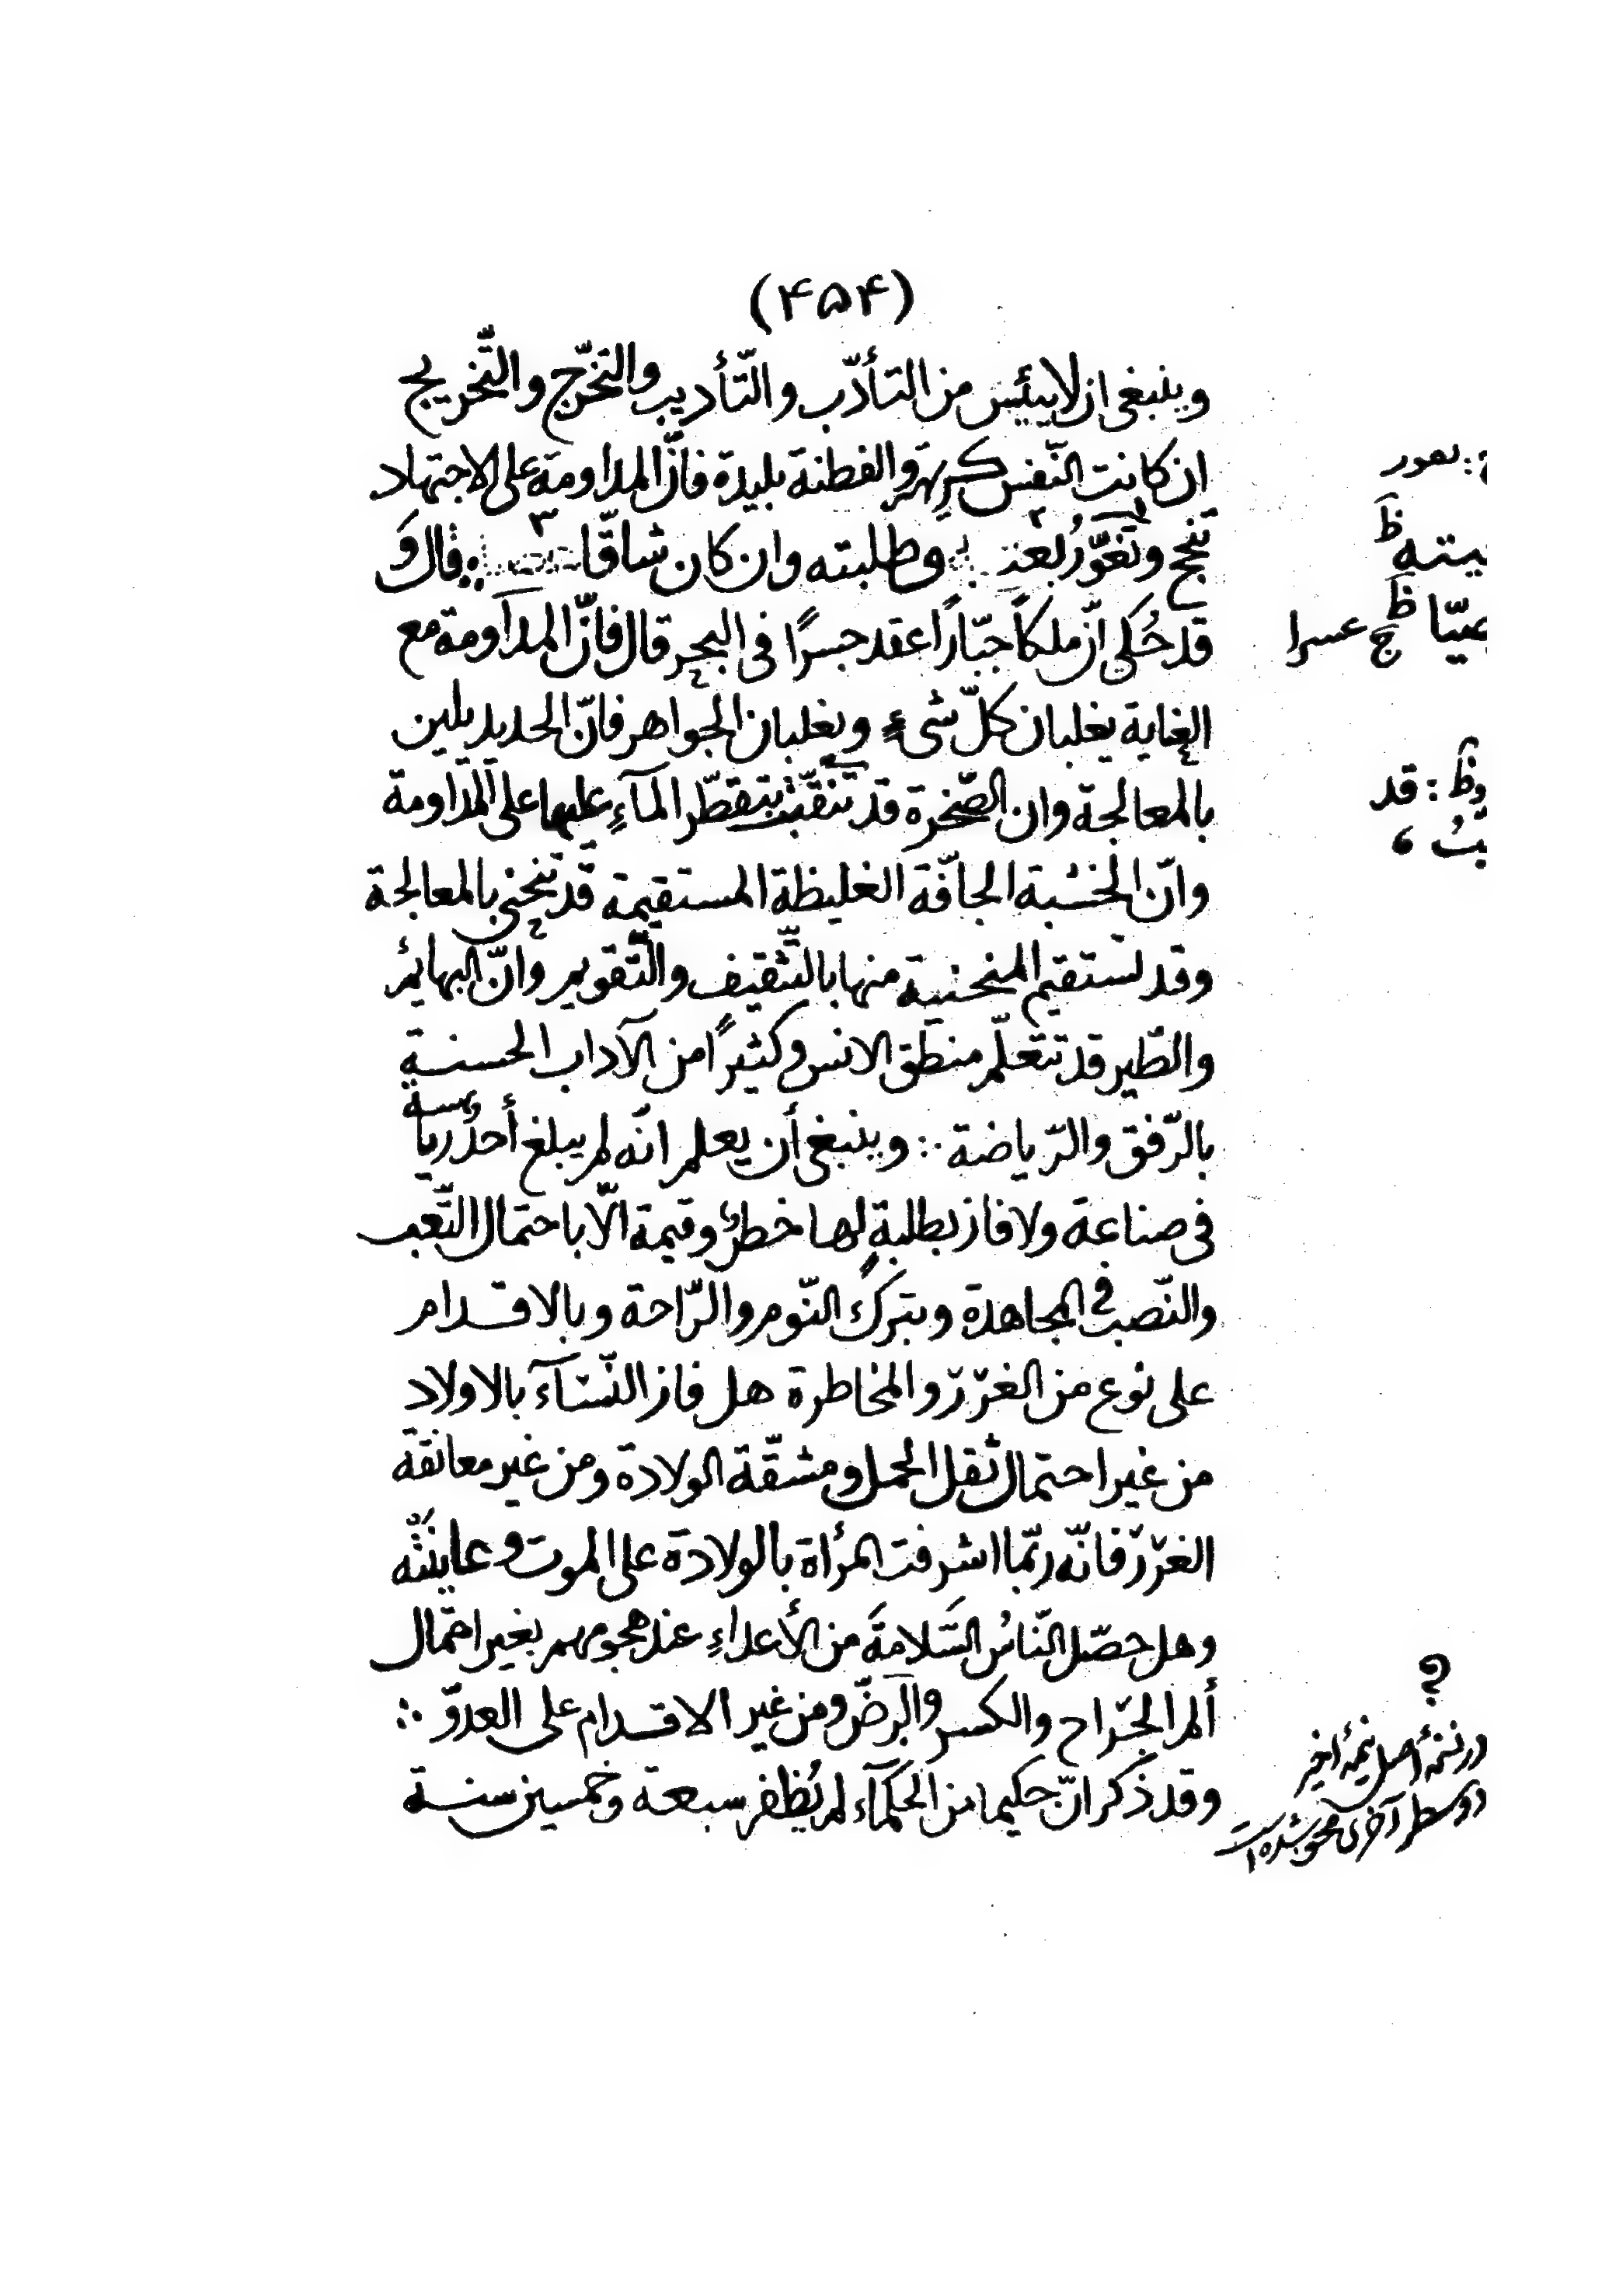 (۴۵۴)
وينبغى ان لا ييئس من التأدّب والتّأديب والتخرّج والتّخريج
ان كانت النّفس كريهة والفطنة بليدة فانّ المداومة على الاجتهاد
تنجح وتغوّر بعد وطلبته وان كان شاقّا ۳ ∴ قال و
قد حُكى انّ ملكاً جبّاراً عقد جسرًا فى البحر قال فانّ المداومة مع
الغاية يغلبان كلّ شىءٍ ويغلبان الجواهر فانّ الحديد يلين
بالمعالجة وان الصّخرة قد تنقّبت بتقطّر المآءِ عليها على المداومة
وانّ الخشبة الجافّة الغليظة المستقيمة قد تنحنى بالمعالجة
وقد تستقيم المنحنية منها بالتّثقيف والتّقويم وانّ البهائم
والطّير قد تتعلّم منطق الانس وكثيرًا من الآداب الحسنة
بالرّفق والرّياضة ∴ وينبغى أن يعلم انّه لم يبلغ أحدٌ رياسة
فى صناعة ولا فاز بطلبةٍ لها خطرٌ وقيمة الّا باحتمال التّعب
والنّصب فى المجاهدة وبترك النّوم والرّاحة وبالاقدام
على نوع من الغرّر والمخاطرة هل فاز النّسآء بالاولاد
من غير احتمال ثقل الحمل ومشقّة الولادة ومن غير معانقة
الغرّر فانّه ربّما اشرفت المرأة بالولادة على الموت وعاينَتْه
وهل حصّل النّاسُ السَّلامةَ من الأعداءِ عند هجومهم بغير احتمال
ألم الجرّاح والكسر والرضّ ومن غير الاقدام على العدوّ ∴
وقد ذكر انّ حكيما من الحكمآء لم يُظفر سبعة وخمسين سنة
: تعور
يته ظ
عيّا ظ ج عسرا
وظ : قد
؟
در نسخهٔ اصل نيمهٔ اخير
دو سطر آخرى محو شده است